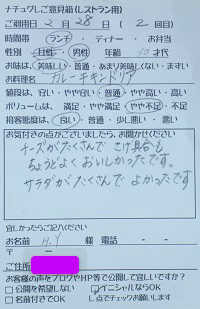 ナチュクしご意見箱(レストラン用)
ご利用日 2月 28日 ( 2 回目)
時間帯 ランチ ・ ディナー ・ お弁当
性別 女性 ・ 男性 年齢 10 才代
お味は、美味しい・普通・あまり美味しくない・まずい
お料理名 カレーチキンドリア
値段は、安い・やや安い・普通・やや高い・高い
ボリュームは、満足・やや満足・やや不足・不足
接客態度は、良い・普通・少し悪い・悪い
お気付きの点がございましたら、お聞かせください
チーズがたくさんで こげ具合も
ちょうどよく おいしかったです。
サラダがたくさんで よかったです
宜しかったらご記入ください
お名前 H.Y 様 電話 - -
〒 -
ご住所
お客様の声をブログやHP等で公開して宜しいですか?
□公開を希望しない □イニシャルならOK
□名前付きでOK レ点でチェックお願いします